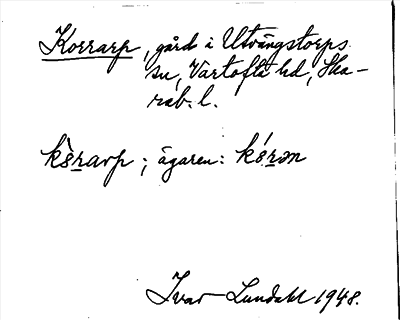 Korrarp, gård i Utvängstorps
sn, Vartofta hd, Ska-
rab. l.
ks̀rarp ; ägaren: kśrən
Ivar Lundahl 1948.